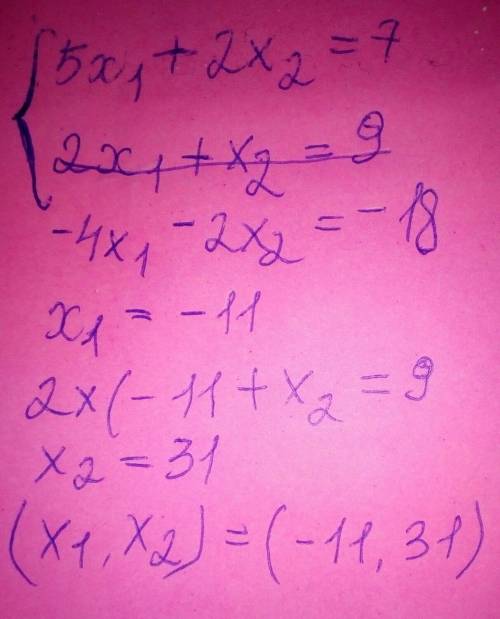 5x₁ + 2x₂ = 7
2x₁ + x₂ = 9
-4x₁ - 2x₂ = -18
x₁ = -11
2x(-11 + x₂ = 9
x₂ = 31
(x₁, x₂) = (-11, 31)